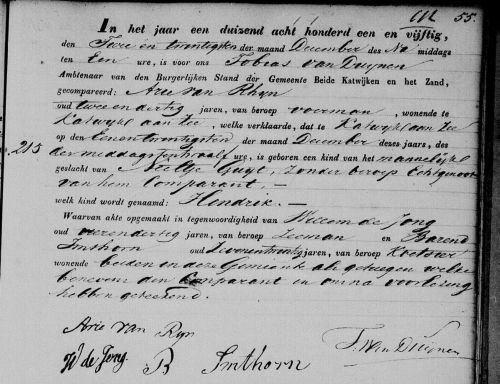 112 55.
In het jaar een duizend acht honderd een en vijftig,
den Twee en twintigsten der maand December des Na middags
ten Een ure, is voor ons Tobias van Duijnen
Ambtenaar van den Burgerlijken Stand der Gemeente Beide Katwijken en het Zand,
gecompareerd: Arie van Rhijn
oud twee en dertig jaren, van beroep voerman, wonende te
Katwijk aan Zee, welke verklaarde, dat te Katwijk aan Zee
op den Eenentwintigsten der maand December dezes jaars, des
215 der middags ten half ure, is geboren een kind van het mannelijke
geslacht van Neeltje Guijt, zonder beroep Echtgenoot
van hem Comparant, —
welk kind wordt genaamd: Hendrik. —
Waarvan akte opgemaakt in tegenwoordigheid van Willem de Jong
oud jaren, van beroep Zeeman en Barend
Imthorn oud Zevenentwintig jaren, van beroep Koetsier
wonende beiden in deze Gemeente als getuigen welke
benevens den Comparant en na voorlezing
hebben geteekend.
Arie van Ryn
W de Jong B Imthorn T. van Duijnen